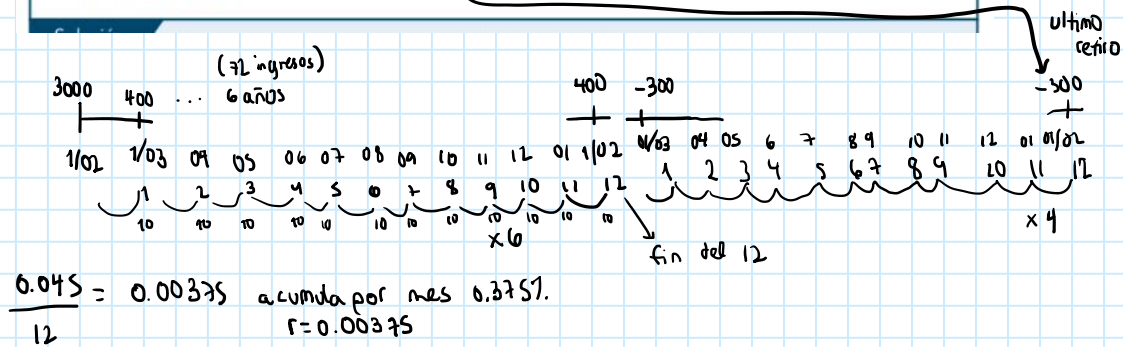 ultimo
retiro
(72 ingresos)
3000 400 ... 6 años 400 -300 -300
1/02 1/03 04 05 06 07 08 09 10 11 12 01 1/02 01/03 04 05 6 7 8 9 10 11 12 01 01/02
1 2 3 4 5 6 7 8 9 10 11 12 1 2 3 4 5 6 7 8 9 10 11 12
10 10 10 10 10 10 10 10 10 10 10 10
x6 x4
fin del 12
0.045 / 12 = 0.00375 acumula por mes 0.375%.
r=0.00375